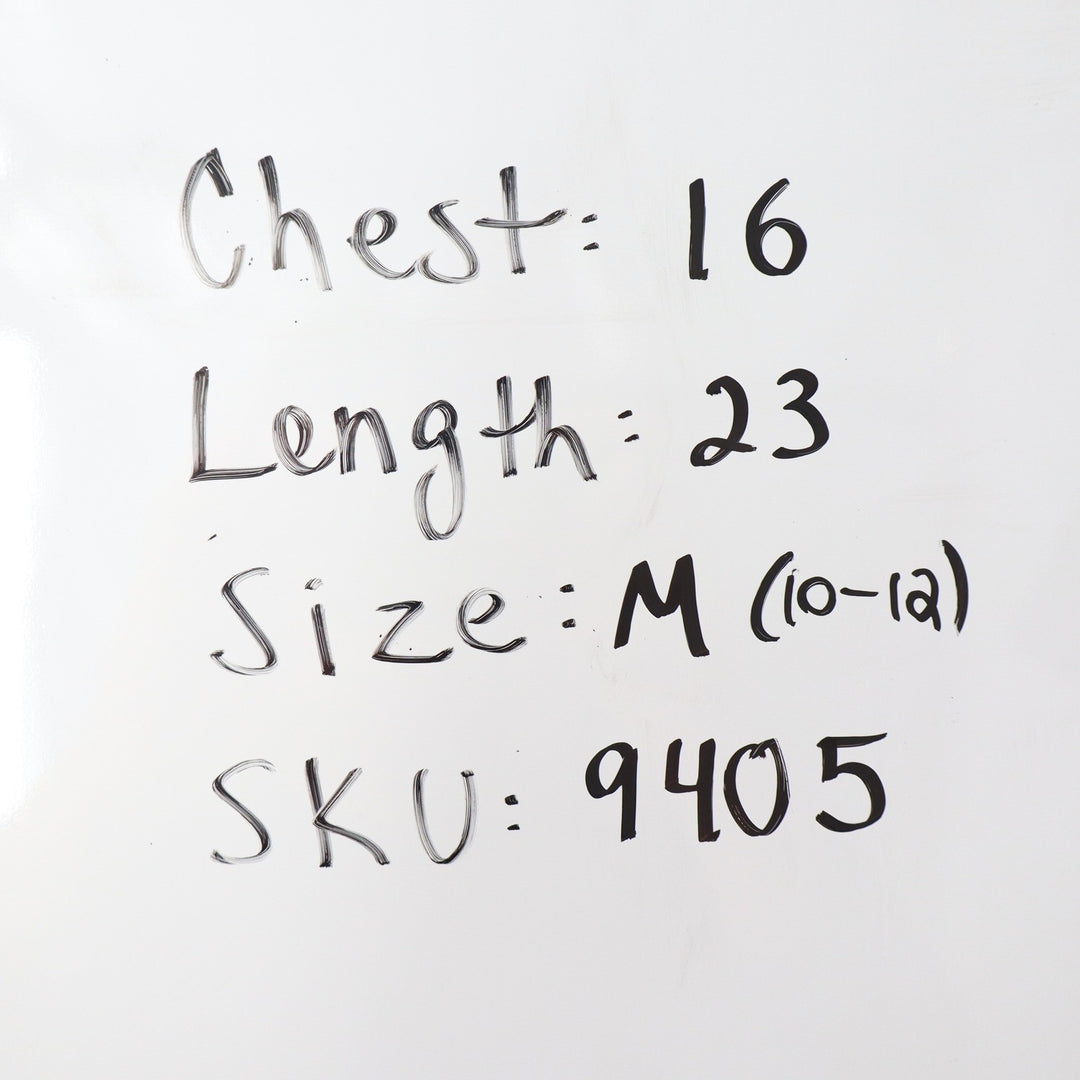 Chest: 16
Length: 23
Size: M (10-12)
SKU: 9405